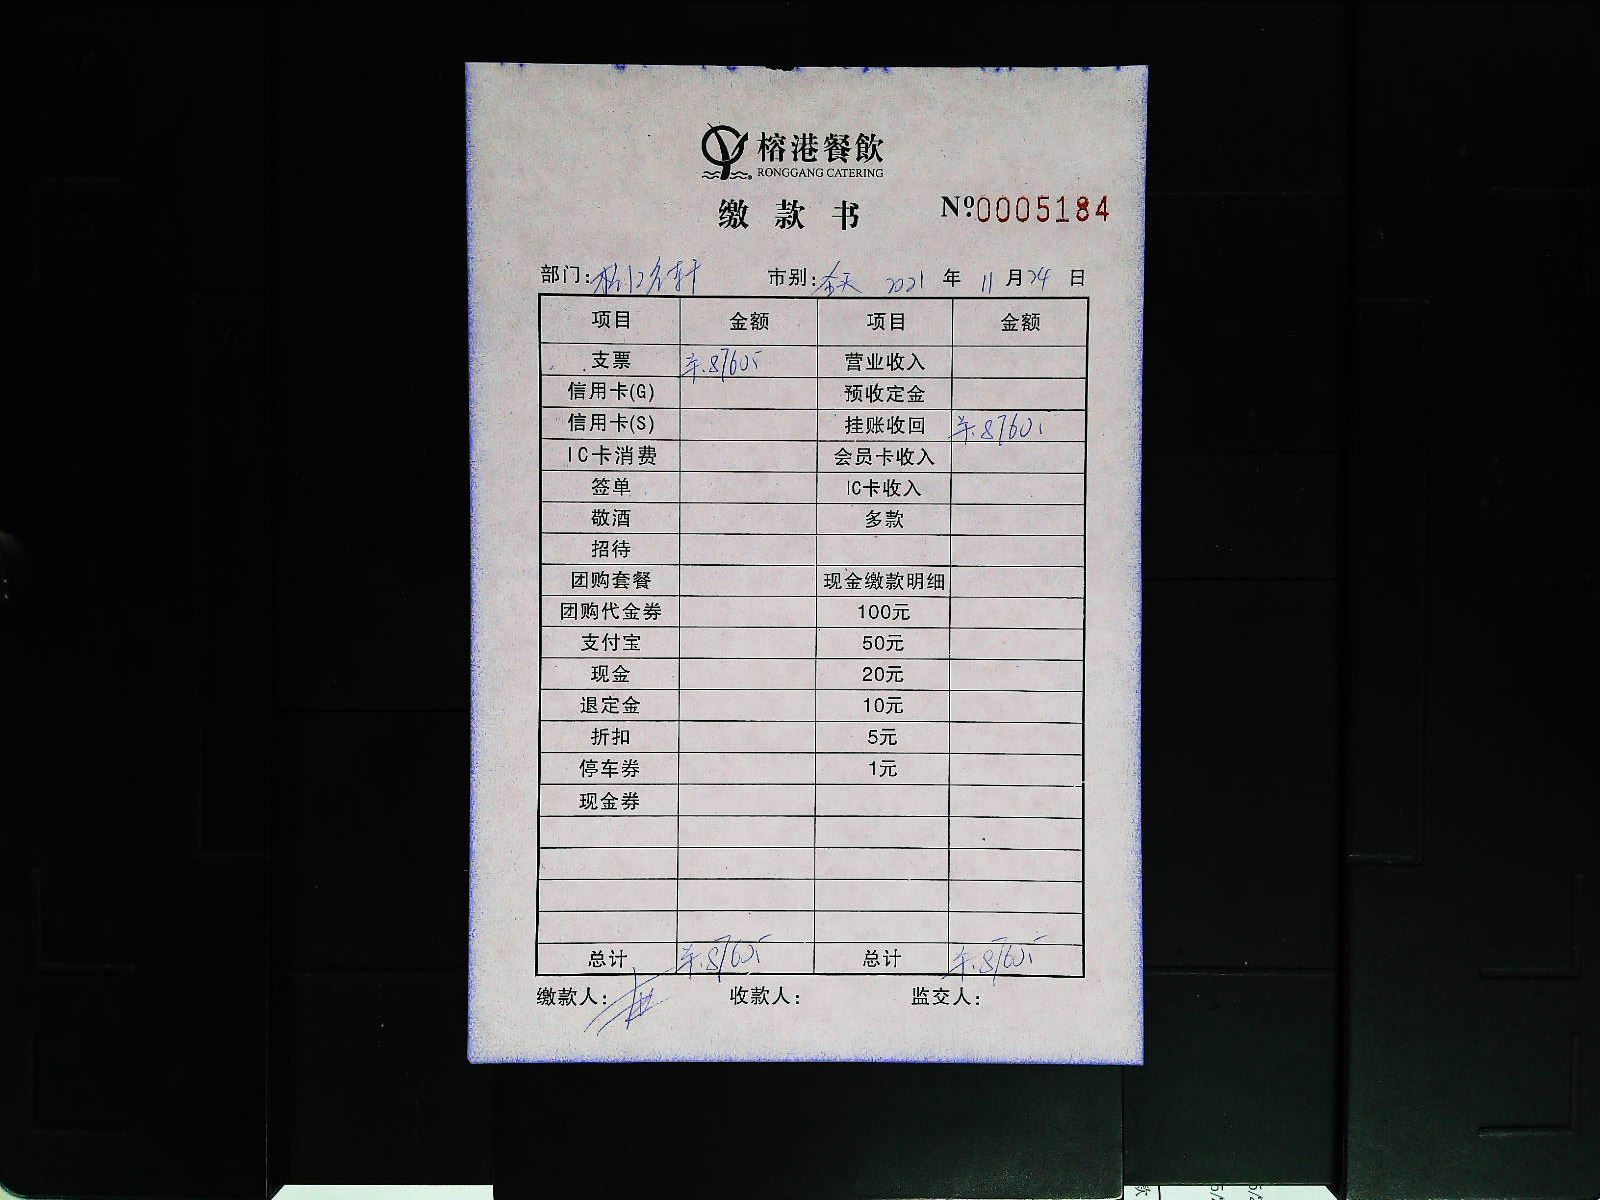 榕港餐飲
RONGGANG CATERING
缴款书 Nº:0005184
部门: 市别:全天 2021年11月24日
项目 金额 项目 金额
支票 ¥.87605 营业收入
信用卡(G) 预收定金
信用卡(S) 挂账收回 ¥.87605
IC卡消费 会员卡收入
签单 IC卡收入
敬酒 多款
招待
团购套餐 现金缴款明细
团购代金券 100元
支付宝 50元
现金 20元
退定金 10元
折扣 5元
停车券 1元
现金券
总计 ¥.87605 总计 ¥.87605
缴款人: 收款人: 监交人: